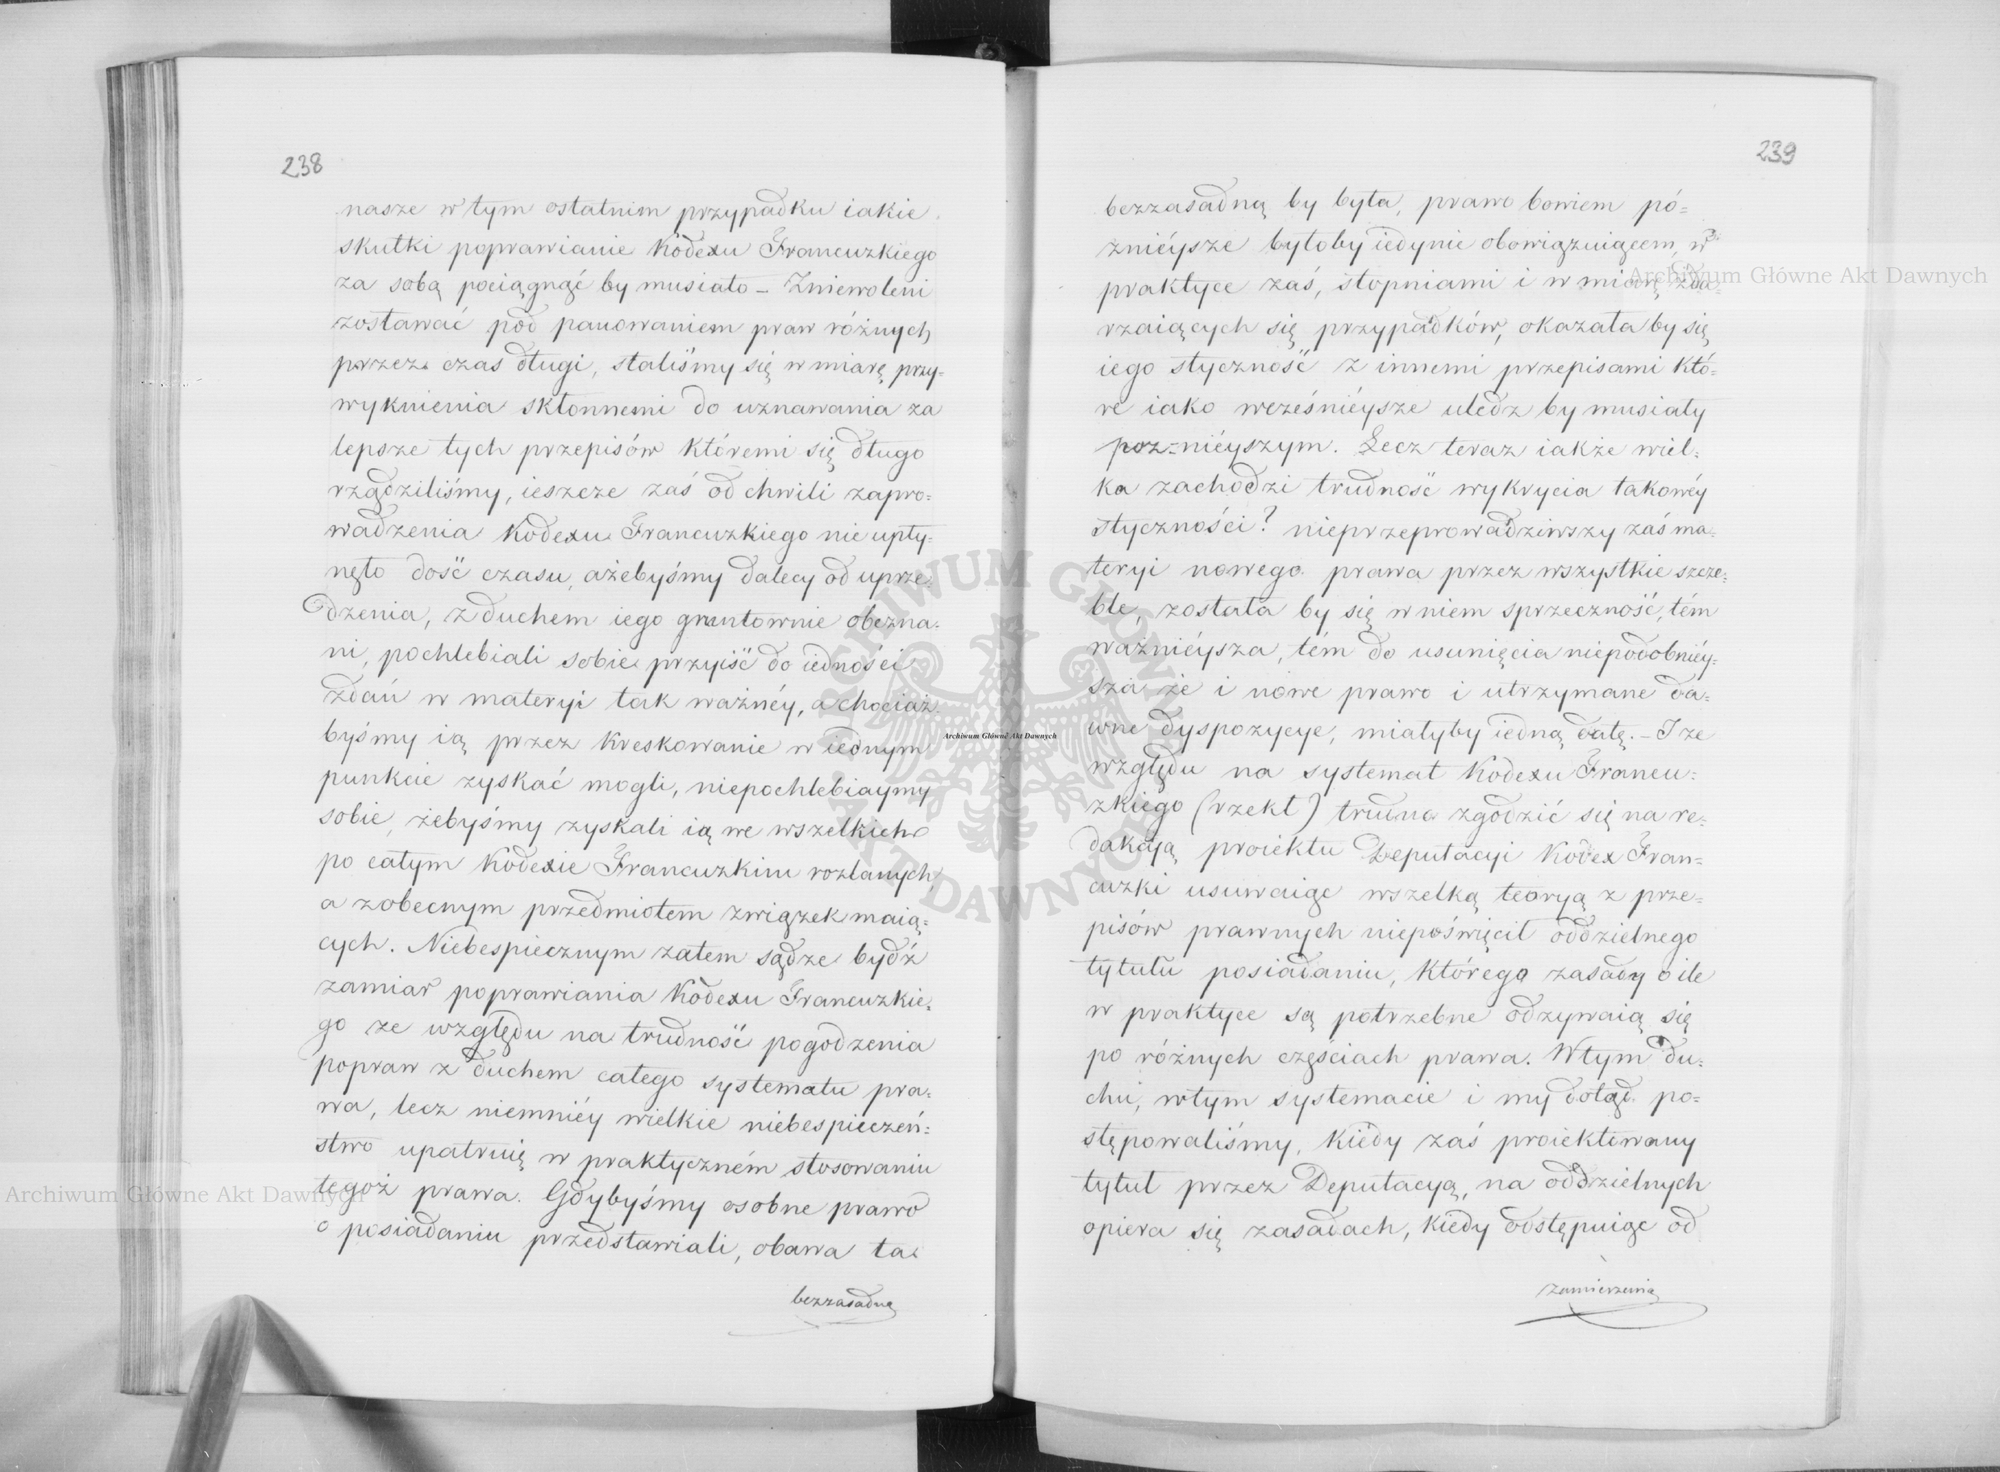 238
nasze w tym ostatnim przypadku iakie
skutki poprawianie Kodexu Francuzkiego
za sobą pociągnąć by musiało – Zniewoleni
zostawać pod panowaniem praw różnych
przez czas długi, staliśmy się w miarę przy-
wyknienia skłonnemi do uznawania za
lepsze tych przepisów któremi się długo
rządziliśmy, ieszcze zaś od chwili zapro-
wadzenia Kodexu Francuzkiego nie upły-
nęło dość czasu, ażebyśmy dalecy od uprze-
dzenia, z duchem iego gruntownie obezna-
ni, pochlebiali sobie przyiść do iedności
zdań w materyi tak ważnéy, a chociaż
byśmy ią przez Kreskowanie w iednym
punkcie zyskać mogli, niepochlebiaymy
sobie, żebyśmy zyskali ią we wszelkich
po całym Kodexie Francuzkim rozlanych
a z obecnym przedmiotem związek maią-
cych. Niebespiecznym zatem sądze bydź
zamiar poprawiania Kodexu Francuzkie-
go ze względu na trudność pogodzenia
popraw z duchem całego systematu pra-
wa, lecz niemniéy wielkie niebespieczeń-
stwo upatruię w praktyczném stosowaniu
tegoż prawa. Gdybyśmy osobne prawo
o posiadaniu przedstawiali, obawa ta
bezzasadną
239
bezzasadną by była, prawo bowiem pó-
źniéysze byłoby iedynie obowiązuiącem, w
praktyce zaś, stopniami i w miarę zda-
rzaiących się przypadków, okazała by się
iego styczność z innemi przepisami któ-
re iako wcześniéysze uledz by musiały
poz-niéyszym. Lecz teraz iakże wiel-
ka zachodzi trudność wykrycia takowéy
styczności? nieprzeprowadziwszy zaś ma-
teryi nowego prawa przez wszystkie szcze-
ble, została by się w niem sprzeczność, tém
ważniéysza, tém do usunięcia niepodobniéy-
sza że i nowe prawo i utrzymane da-
wne dyspozycye, miałyby iedną datę. – I ze
względu na systemat Kodexu Francu-
zkiego (rzekł) trudno zgodzić się na re-
dakcyą proiektu Deputacyi Kodex Fran-
cuzki usuwaiąc wszelką teoryą z prze-
pisów prawnych niepoświęcił oddzielnego
tytułu posiadaniu, którego zasady o ile
w praktyce są potrzebne odzywaią się
po różnych częściach prawa. W tym du-
chu, w tym systemacie i my dotąd po-
stępowaliśmy, kiedy zaś proiektowany
tytuł przez Deputacyą, na oddzielnych
opiera się zasadach, kiedy odstępuiąc od
zamierzenia
Archiwum Główne Akt Dawnych
Archiwum Główne Akt Dawnych
Archiwum Główne Akt Dawnych
ARCHIWUM GŁÓWNE AKT DAWNYCH